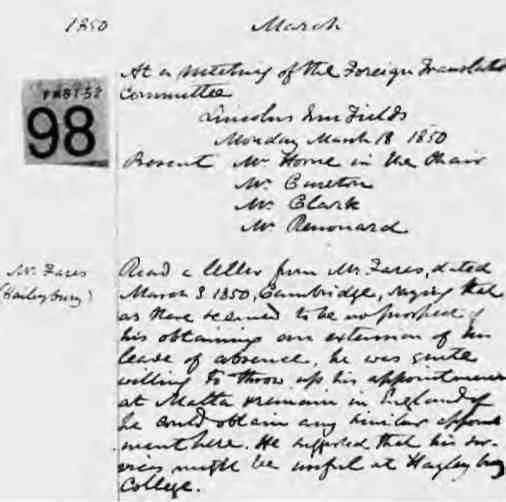 1850 March
At a meeting of the Foreign Translation
Committee
Lincolns Inn Fields
Monday March 18 1850
98
Present Mr Horne in the Chair
Mr Cureton
Mr Clark
Mr Renouard
Mr. Fares
(Haileybury)
Read a letter from Mr. Fares, dated
March 3. 1850, Cambridge, saying that
as there seemed to be no prospect of
his obtaining an extension of his
leave of absence, he was quite
willing to throw up his appointment
at Malta & remain in England if
he could obtain any similar appoint
ment here. He suggested that his ser-
vices might be useful at Hayleybury
College.